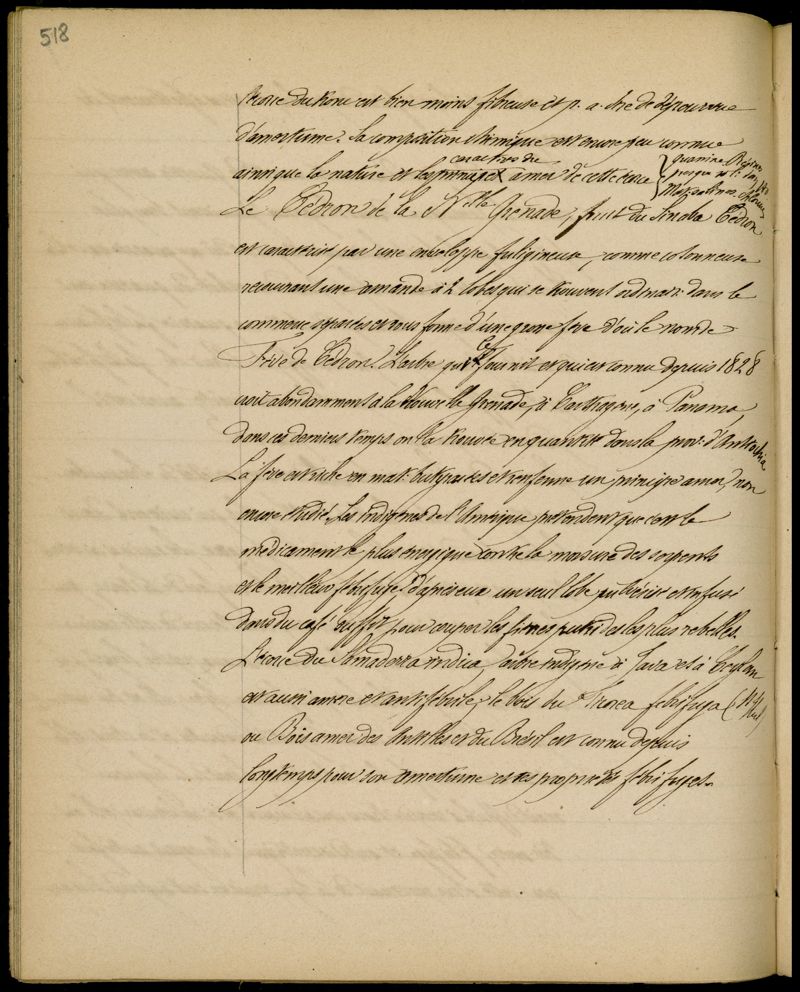 518
l'écorce du tronc est bien moins fibreuse et p. a. dire dépourvue
d'amertume. La composition chimique est encore peu connue
ainsi que la nature et les caractères du principe amer de cette écorce
Le Cédron de la Nlle Grenade, fruit du Simaba Cedron
est caractérisé par une enveloppe fuligineuse, comme cotonneuse
recouvrant une amande à 2 lobes qui se trouvent ordinairt dans le
commerce séparés et sous forme d'une grosse fève d'où le nom de
Fève de Cédron. L'arbre qui le fournit et qui est connu depuis 1828
croît abondamment à la Nouvelle Grenade, à Carthagène, à Panama,
dans ces derniers temps on l'a trouvé en quantité dans la prov. d'Antiochia.
La fève est riche en mat. butgrasses et renferme un principe amer, non
encore étudié. Les indigènes de l'Amérique prétendent que c'est le
médicament le plus énergique contre la morsure des serpents
et le meilleur fébrifuge; d'après eux un seul lobe pulvérisé et infusé
dans du café suffit pour couper les fièvres putrides les plus rebelles.
L'écorce du Samadera indica, arbre indigène à Java et à Ceylan
est aussi amère et antifébrile; le bois du Picrœa febrifuga
ou Bois amer des Antilles et du Brésil est connu depuis
longtemps pour son amertume et ses propriétés fébrifuges.